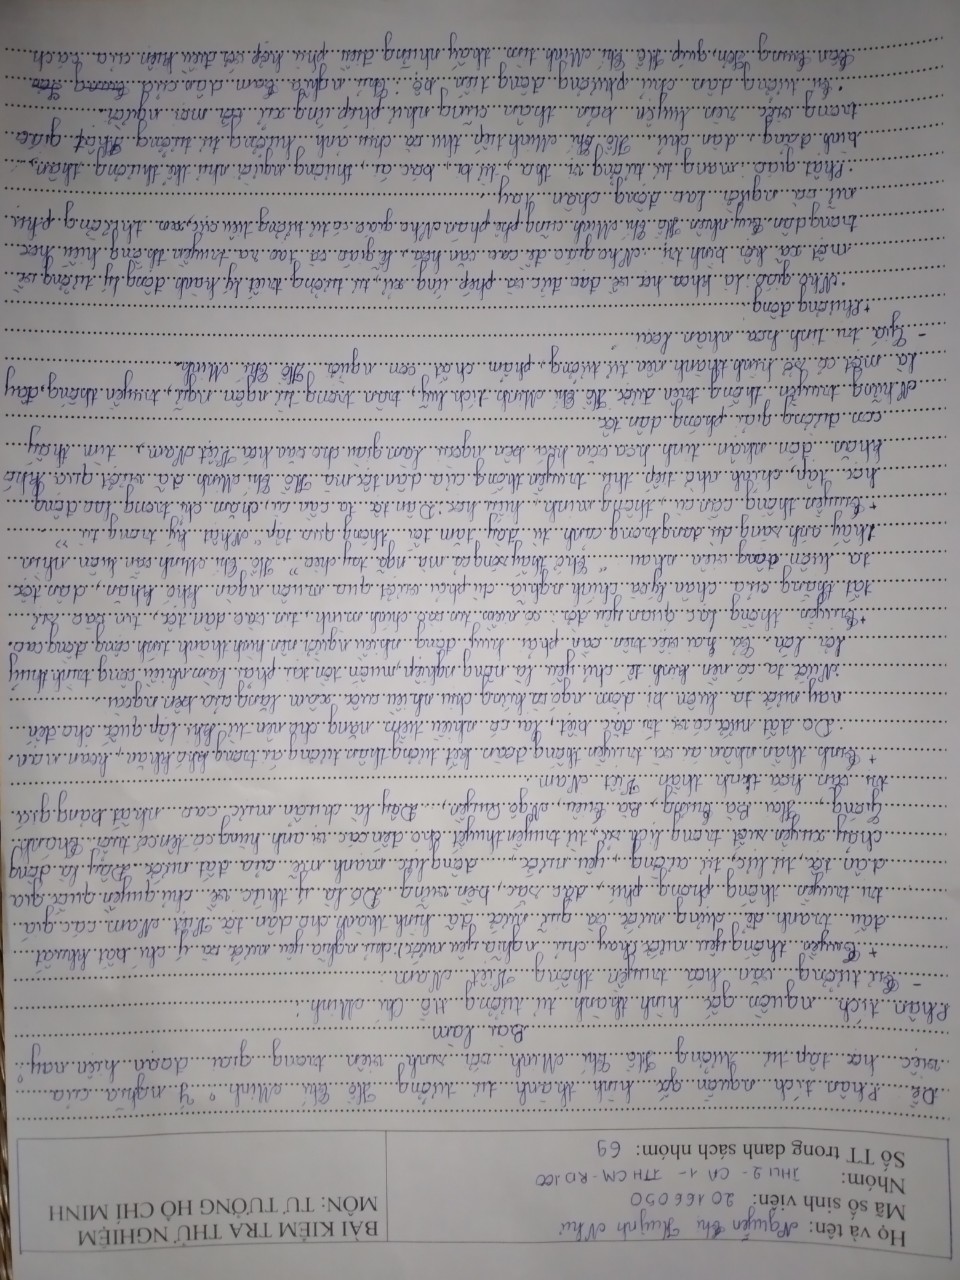 Họ và tên: Nguyễn Thị Huỳnh Như
Mã số sinh viên: 20166050
Nhóm: JHLI 2 - CA 1 - TTHCM - RD.100
Số TT trong danh sách nhóm: 69
BÀI KIỂM TRA THỬ NGHIỆM
MÔN: TƯ TƯỞNG HỒ CHÍ MINH
Đề Phân tích nguồn gốc hình thành tư tưởng Hồ Chí Minh? Ý nghĩa của
việc học tập tư tưởng Hồ Chí Minh với sinh viên trong giai đoạn hiện nay?
Bài làm
Phân tích nguồn gốc hình thành tư tưởng Hồ Chí Minh:
- Tư tưởng văn hoá truyền thống Việt Nam:
+ Truyền thống yêu nước (hay chủ nghĩa yêu nước): chủ nghĩa yêu nước và ý chí bất khuất
đấu tranh để dựng nước và giữ nước đã hình thành cho dân tộc Việt Nam các giá
trị truyền thống phong phú, đặc sắc, bền vững. Đó là ý thức về chủ quyền quốc gia
dân tộc, tự lực, tự cường, yêu nước, động lực mạnh mẽ của đất nước. Đây là dòng
chảy xuyên suốt trong lịch sử, từ truyền thuyết cho đến các vị anh hùng có tên có tuổi Thánh
Gióng, Hai Bà Trưng, Bà Triệu, Ngô Quyền,... Đây là chuẩn mực cao nhất bảng giá
trị văn hoá tinh thần Việt Nam.
+ Tinh thần nhân ái và truyền thống đoàn kết tương thân tương ái trong khó khăn, hoạn nạn.
. Do đất nước có vị trí đặc biệt, lại có nhiều tiềm năng cho nên từ khi lập quốc cho đến
nay nước ta luôn bị dòm ngó và hứng chịu nhiều cuộc xâm lăng của bên ngoài.
. Nước ta có nền kinh tế chủ yếu là nông nghiệp, muốn tồn tại phải làm nhiều công trình thuỷ
lợi lớn. Cả hai việc trên cần phải huy động nhiều người nên hình thành tính cộng đồng cao.
+ Truyền thống lạc quan yêu đời: có niềm tin vào chính mình, tin vào dân tộc, tin vào sự
tất thắng của chân lý và chính nghĩa dù phải vượt qua muôn ngàn khó khăn, dân tộc
ta luôn động viên nhau "Chớ thấy sóng cả mà ngã tay chèo". Hồ Chí Minh vẫn luôn nhìn
thấy ánh sáng dù đang trong cảnh tù đày tăm tối thông qua tập "Nhật ký trong tù".
+ Truyền thống cần cù, thông minh, hiếu học: Dân tộc ta cần cù, chăm chỉ trong lao động
học tập, chính nhờ tiếp thu truyền thống của dân tộc mà Hồ Chí Minh đã vượt qua khó
khăn đón nhận tinh hoa văn hoá bên ngoài làm giàu cho văn hoá Việt Nam, tìm thấy
con đường giải phóng dân tộc
Những truyền thống trên được Hồ Chí Minh tích luỹ, trân trọng từ ngôn ngữ, truyền thống, đây
là một cơ sở hình thành nên tư tưởng, phẩm chất con người Hồ Chí Minh.
- Giá trị tinh hoa nhân loại:
+ Phương đông
. Nho giáo: là khoa học về đạo đức và phép ứng xử, tư tưởng triết lý hành động lý tưởng về
một xã hội bình trị. Nho giáo đề cao văn hoá, lễ giáo và tạo ra truyền thống hiếu học
trong dân. Tuy nhiên Hồ Chí Minh cũng phê phán Nho giáo có tư tưởng tiêu cực, xem thường phụ
nữ và người lao động chân tay.
. Phật giáo: mang tư tưởng vị tha, từ bi, bác ái, thương người như thể thương thân,
bình đẳng, dân chủ. Hồ Chí Minh tiếp thu và chịu ảnh hưởng tư tưởng Phật giáo
trong việc rèn luyện bản thân cũng như phép ứng xử với mọi người.
. Tư tưởng dân chủ phương đông tiến bộ: Chủ nghĩa Tam dân của
Tôn Trung Sơn, giúp Hồ Chí Minh tìm thấy những điều phù hợp với điều kiện của cách